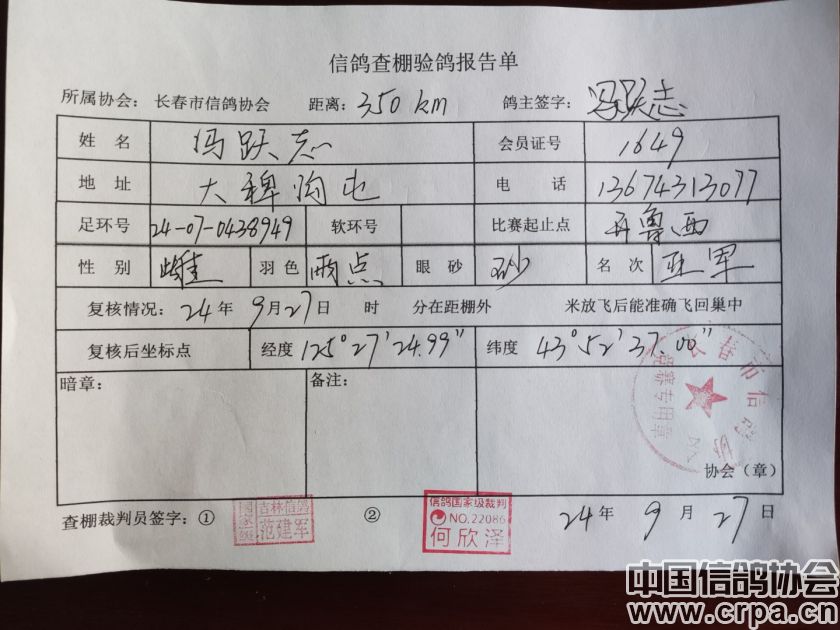 信鸽查棚验鸽报告单
所属协会：长春市信鸽协会 距离：350km 鸽主签字：冯跃志
姓 名 冯跃志 会员证号 1649
地 址 大稗沟屯 电 话 13674313077
足环号 24-07-0438949 软环号 比赛起止点 鲁西
性 别 雌 羽色 雨点 眼砂 砂 名次 亚军
复核情况：24年9月27日 时 分在距棚外 米放飞后能准确飞回巢中
复核后坐标点 经度 125°27'24.99" 纬度 43°52'37.00"
暗章： 备注：
长春市信鸽协会
竞赛专用章
协会（章）
查棚裁判员签字：① ② 24年9月27日
吉林信鸽
范建军
信鸽国家级裁判
NO.22086
何欣泽
中国信鸽协会
www.crpa.cn